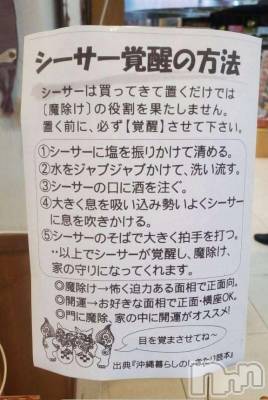 シーサー覚醒の方法
シーサーは買ってきて置くだけでは
[魔除け]の役割を果たしません。
置く前に、必ず【覚醒】させて下さい。
①シーサーに塩を振りかけて清める。
②水をジャブジャブかけて、洗い流す。
③シーサーの口に酒を注ぐ。
④大きく息を吸い込み勢いよくシーサー
に息を吹きかける。
⑤シーサーのそばで大きく拍手を打つ。
・・以上でシーサーが覚醒し、魔除け、
家の守りになってくれます。
◎魔除け→怖く迫力ある面相で正面向。
◎開運→お好きな面相で正面・横座OK。
◎門に魔除、家の中に開運がオススメ!
目を覚まさせてね～
出典『沖縄暮らしのしきたり読本』